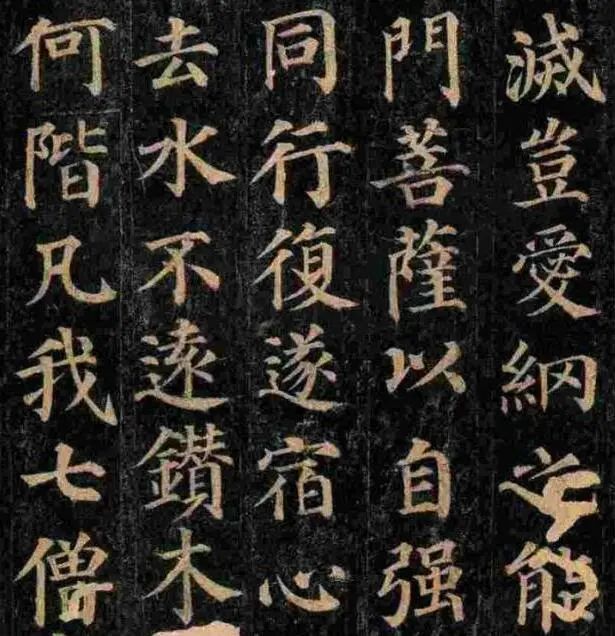 滅豈愛網之能
門菩薩以自强
同行復遂宿心
去水不遠鑽木
何階凡我七僧